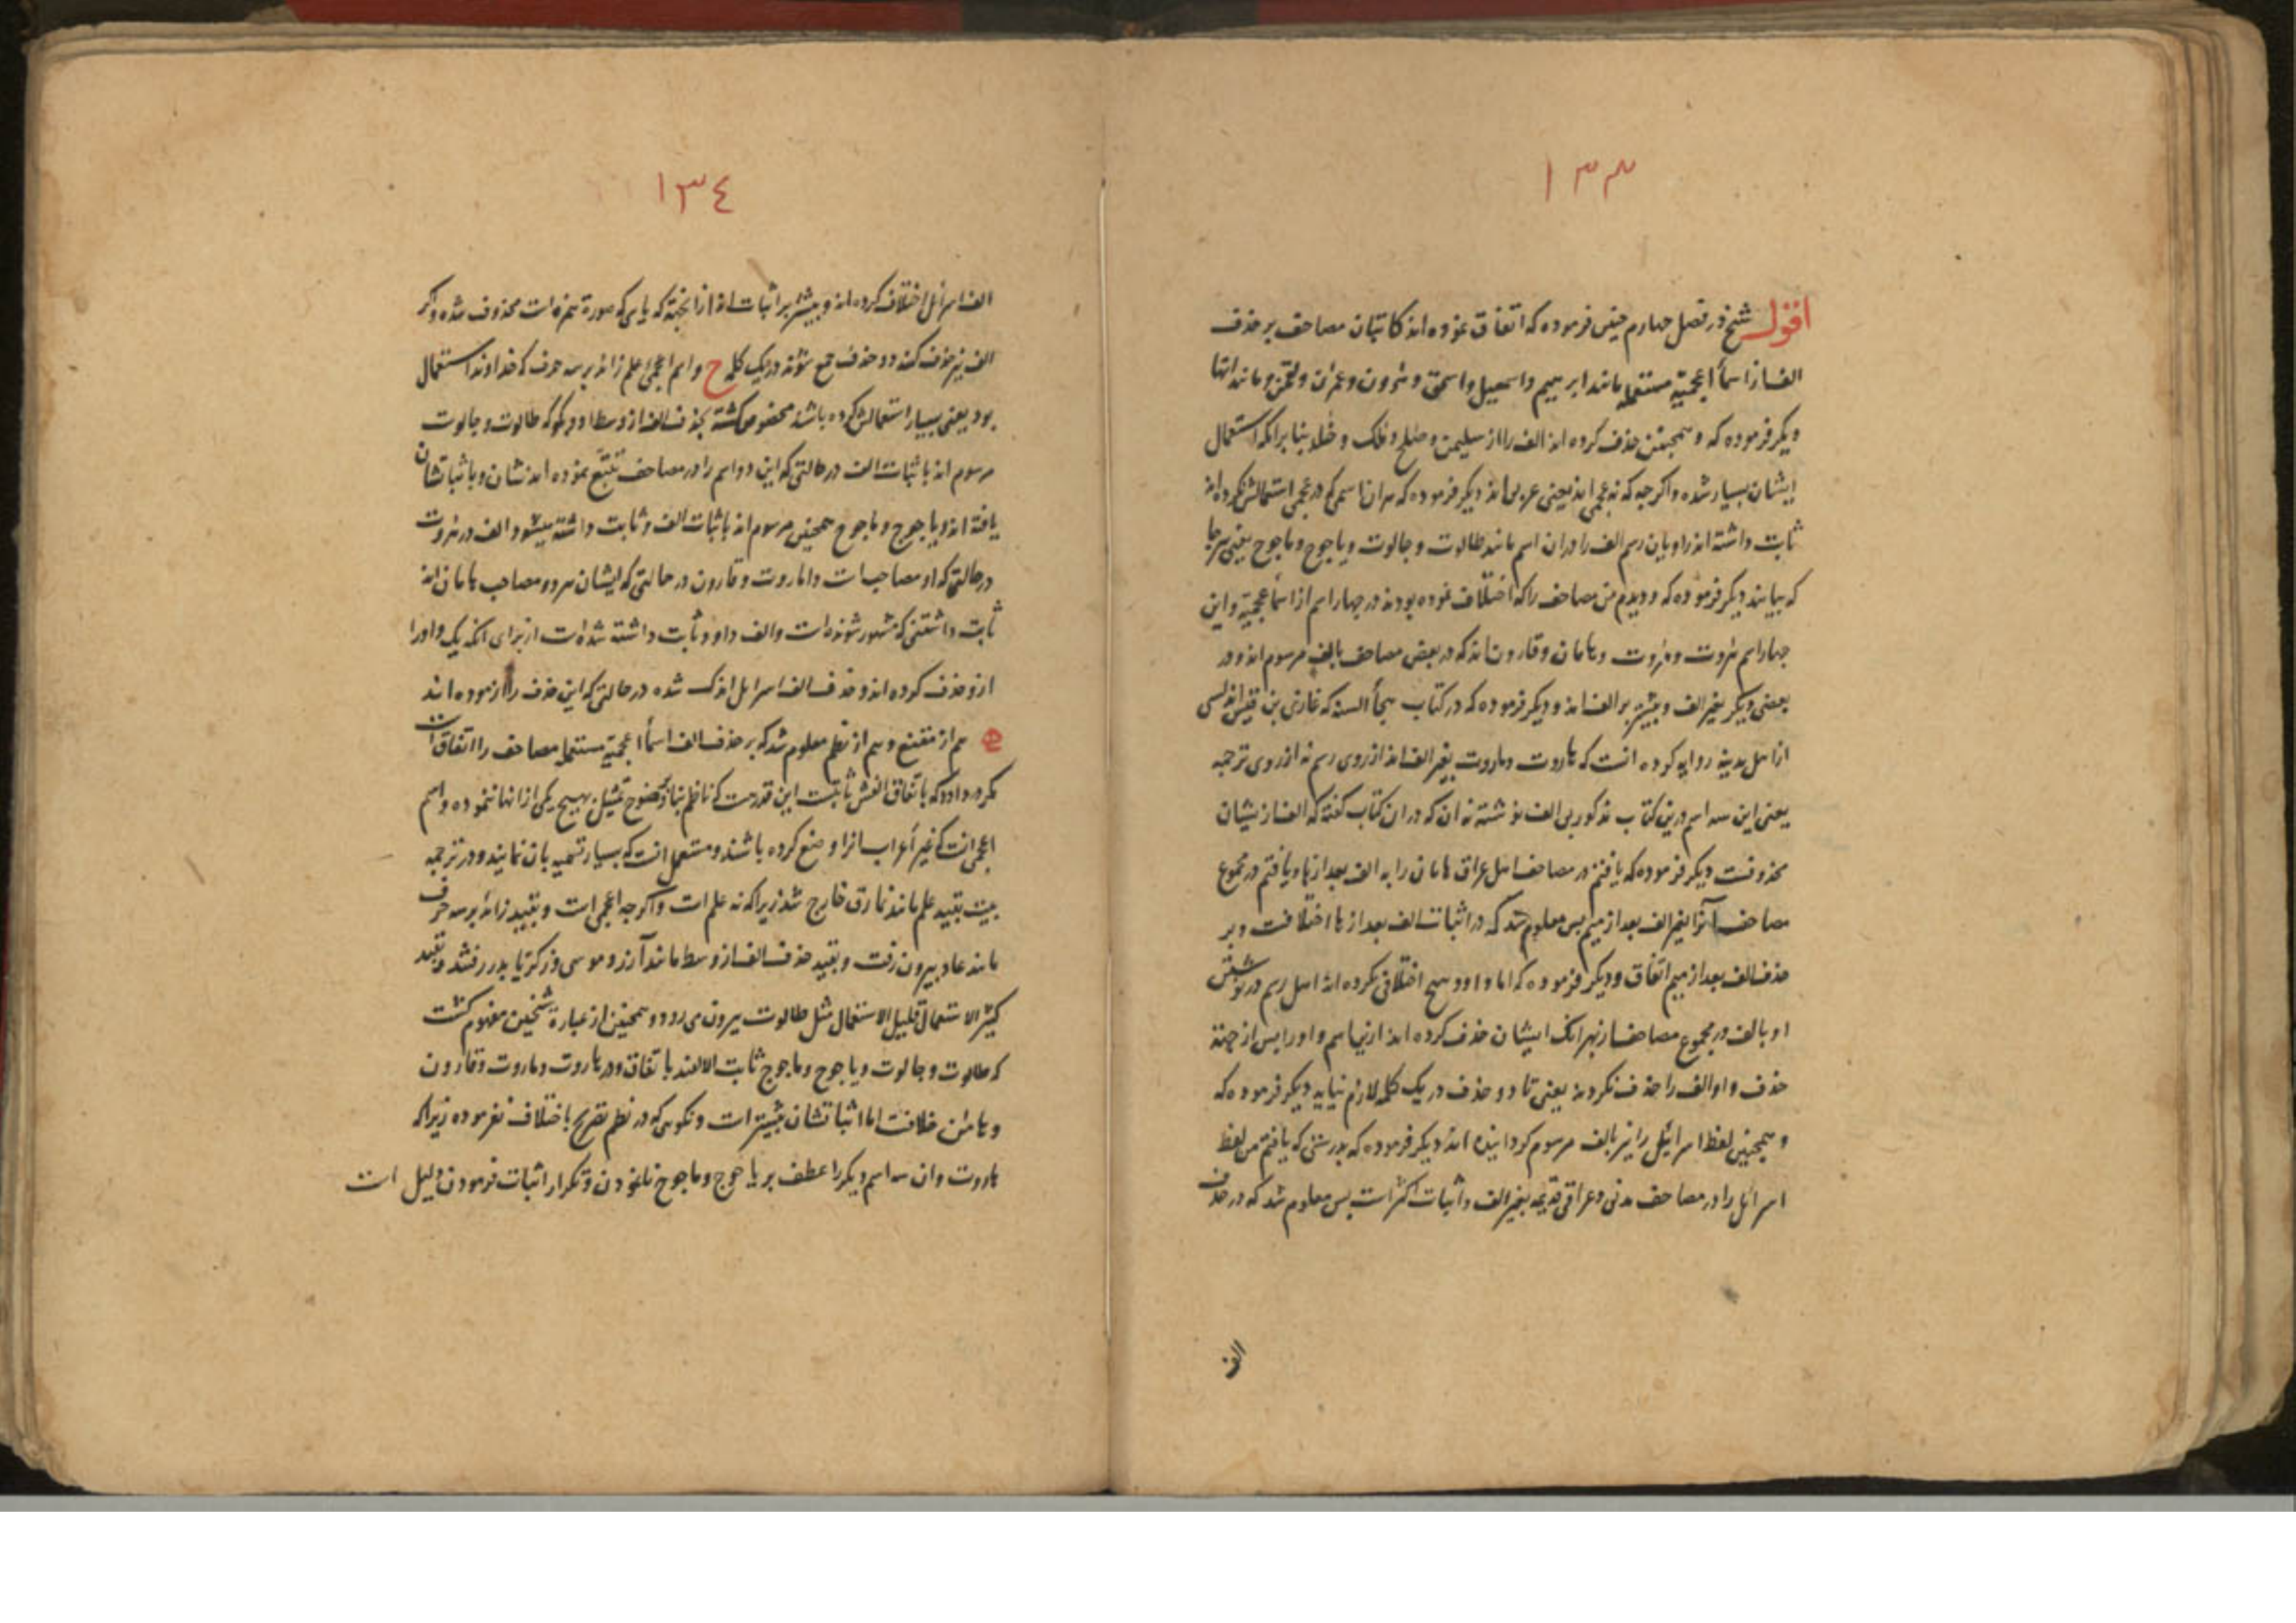 ١٣٣
اقول شیخ در فصل چهارم چنین فرموده که اتفاق نموده اند کاتبان مصاحف بر حذف
الف از اسمأ اعجمیّة مستعمله مانند ابرهیم و اسمعیل و اسحق و هرون و عمرن و لقمن و مانند اینها
دیکر فرموده که و همچنین حذف کرده اند الف را از سلیمن و صلح و ملک و خلد بنا بر انکه استعمال
ایشان بسیار شده و اکر چه که نه عجمی اند یعنی عربی اند دیکر فرموده که هر ان اسمی که در عجمی استعمالش نکرده اند
ثابت داشته اند راویان رسم الف را در ان اسم مانند طالوت و جالوت و یاجوج و ماجوج یعنی هر جا
که بیایند دیکر فرموده که و دیدم من مصاحف را که اختلاف نموده بودند در چهار اسم از اسمأ عجمیّة و این
چهار اسم هروت و مروت و هامان و قارون اند که در بعض مصاحف بالف مرسوم اند و در
بعضی دیکر بغیر الف و بیشتر بر الف اند و دیکر فرموده که در کتاب هجأ السنة که غازی بن قیس اندلسی
از اهل مدینه روایه کرده انست که هاروت و ماروت بغیر الف اند از روی رسم نه از روی ترجمه
یعنی این سه اسم درین کتاب مذکور بی الف نوشته نه ان که در ان کتاب کفته که الف از یشان
محذوفست دیکر فرموده که یافتم در مصاحف اهل عراق هامان را به الف بعد از ها و یافتم در مجموع
مصاحف آنرا بغیر الف بعد از میم پس معلوم شد که در اثبات الف بعد از ها اختلافست و بر
حذف الف بعد از میم اتفاق و دیکر فرموده که اما داود هیچ اختلافی نکرده اند اهل رسم در نوشتن
او بالف در مجموع مصاحف از بهر انک ایشان حذف کرده اند ازین اسم واو را پس از جهة
حذف واو الف را حذف نکردند یعنی تا دو حذف در یک کلمه لازم نیاید دیکر فرموده که
و همچنین لفظ اسرائل را نیز بالف مرسوم کردانیده اند دیکر فرموده که بدرستی که یافتم من لفظ
اسرائل را در مصاحف مدنی و عراقی قدیمه بغیر الف و اثبات اکثر است پس معلوم شد که در حذف
الف
١٣٤
الف اسرائل اختلاف کرده اند و بیشتر بر اثبات اند از انجهة که یایی که صورة همزه است محذوف شده و اکر
الف نیز حذف کنند دو حذف جمع شوند در یک کلمه ح و اسم اعجمئ علم زائد بر سه حرف که خداوند استعمال
بود یعنی بسیار استعمالش کرده باشند مخصوص کشته بحذف الف از وسط او و بکو که طالوت و جالوت
مرسوم اند باثبات الف در حالتی که این دو اسم را در مصاحف تتبّع نموده اند نشان و باثباتشان
یافته اند و یاجوج و ماجوج همچنین مرسوم اند باثبات الف و ثابت داشته میشود الف در هروت
در حالتی که او مصاحب است و اماروت و قارون در حالتی که ایشان هر دو مصاحب هامان اند
ثابت داشتنی که مشهور شونده است و الف داود ثابت داشته شده است از برای انکه یک واو را
ازو حذف کرده اند و حذف الف اسرایل اندک شده در حالتی که این حذف را ازموده اند
هم از مقنع و هم از نظم معلوم شد که بر حذف الف اسمأ اعجمیّة مستعمله مصاحف را اتفاق است
مکر در داود که باتفاق الفش ثابتست این قدر هست که ناظم بنا بر وضوح تمثیل بهیچ یکی از انها ننموده و اسم
اعجمی انست که غیر اعراب انرا وضع کرده باشند و مستعمل انست که بسیار تسمیه بان نمایند و در ترجمه
بیت بقید علم مانند نمارق خارج شد زیرا که نه علم است و اکر چه اعجمی است و بقید زائد بر سه حرف
مانند عاد بیرون رفت و بقید حذف الف از وسط مانند آزر و موسی و زکریّا بدر رفتند و بقید
کثیر الاستعمال قلیل الاستعمال مثل طالوت بیرون می رود و همچنین از عبارة شیخین مفهوم کشت
که طالوت و جالوت و یاجوج و ماجوج ثابت الالفند باتفاق و در هاروت و ماروت و قارون
و هامن خلافست اما اثباتشان بیشتر است و نکویی که در نظم تصریح باختلاف نفرموده زیرا که
هاروت و ان سه اسم دیکر را عطف بر یاجوج و ماجوج نانمودن و تکرار اثبات فرمودن دلیل است